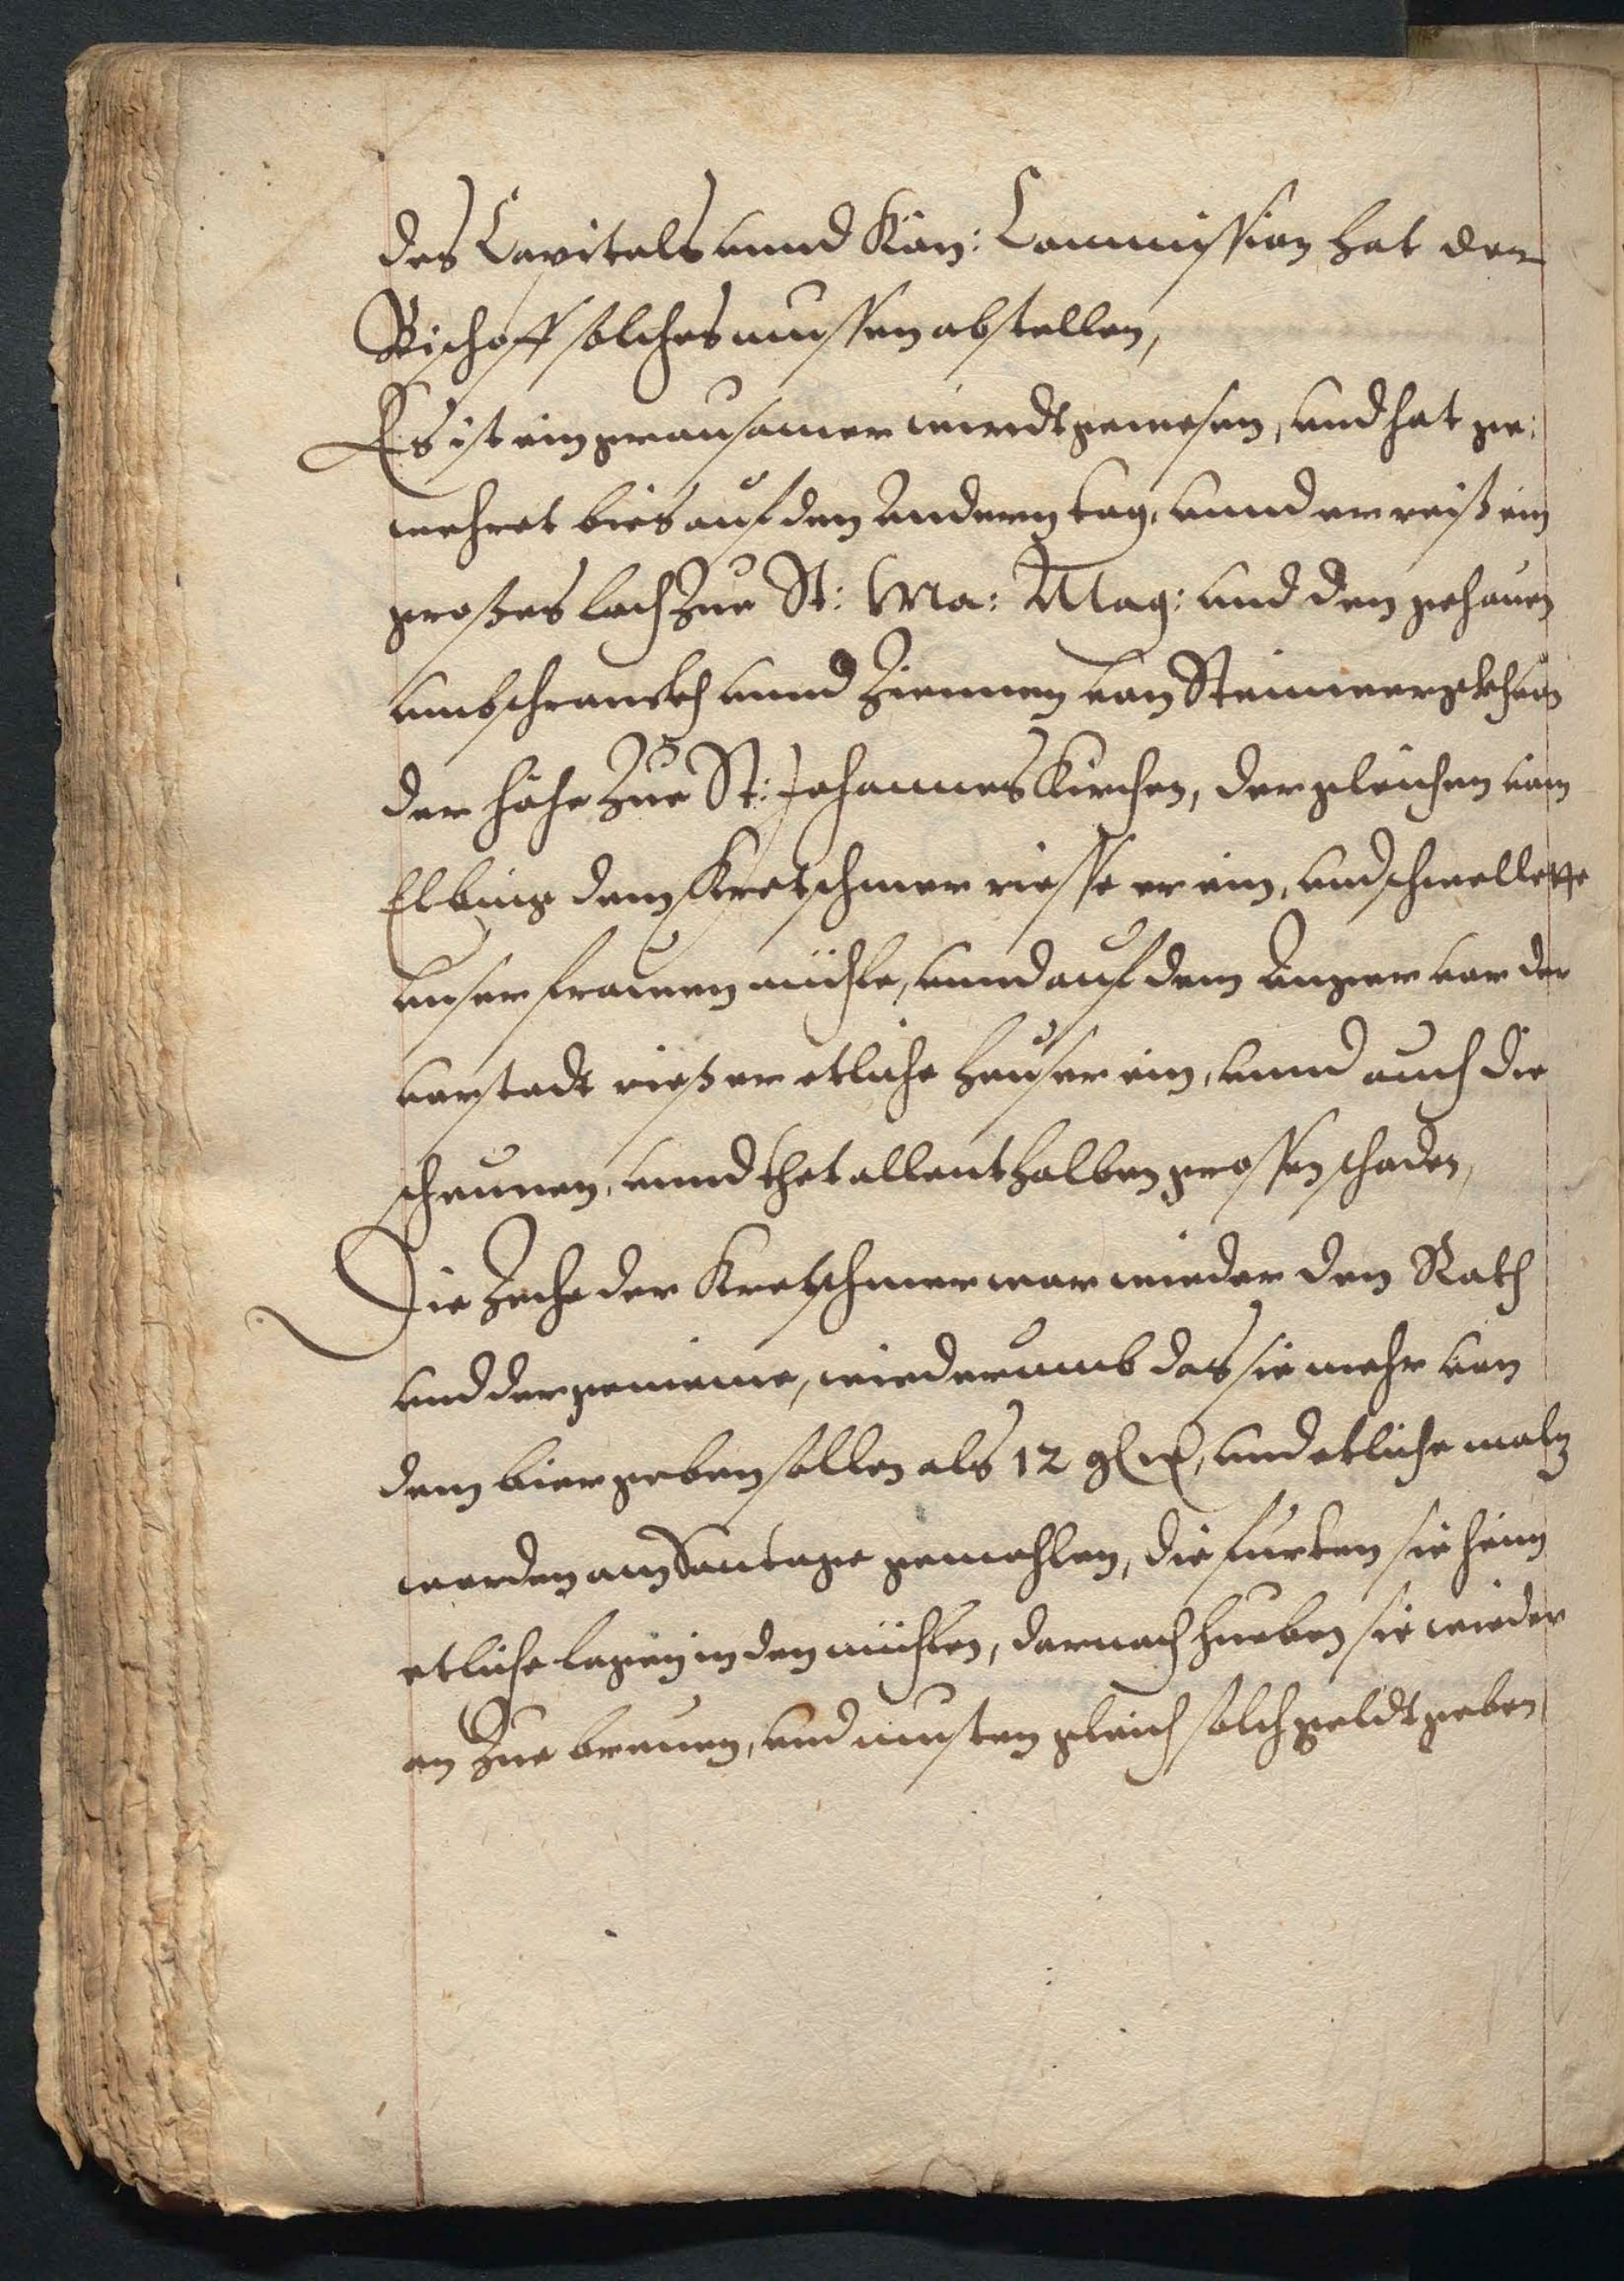 des Capitals unnd Kön: Commission hat der
Bischoff solches mussen abstellen,
Es ist ein grausamer windt gewesen, und hat ge:
wehret bies auf den andern tag, unnd er reiß ein
großes loch Zue St: Ma: Mag: und den gehauen
umbschranckh unnd Zinnen von Steinwergkh von
der höhe Zue St: Johannes Kirchen, dergleichen vom
Elbing dem Kretschmer riesse er ein, und schwellete
unser frauen mühle, unnd auf dem Anger vor der
vorstadt rieß er etliche heuser ein, unnd auch die
scheunen, unnd thet allenthalben grossen schaden,
Die Zeche der Kretschmer war wieder den Rath
und der gemeine, wiederumb das sie mehr von
dem bier geben sollen als 12 und etliche maltz
worden am Sontage gemahlen, die furten sie heim
etliche lagen in den mühlen, darnach hueben sie wieder
an Zue breuen, und musten gleich solch geldt geben